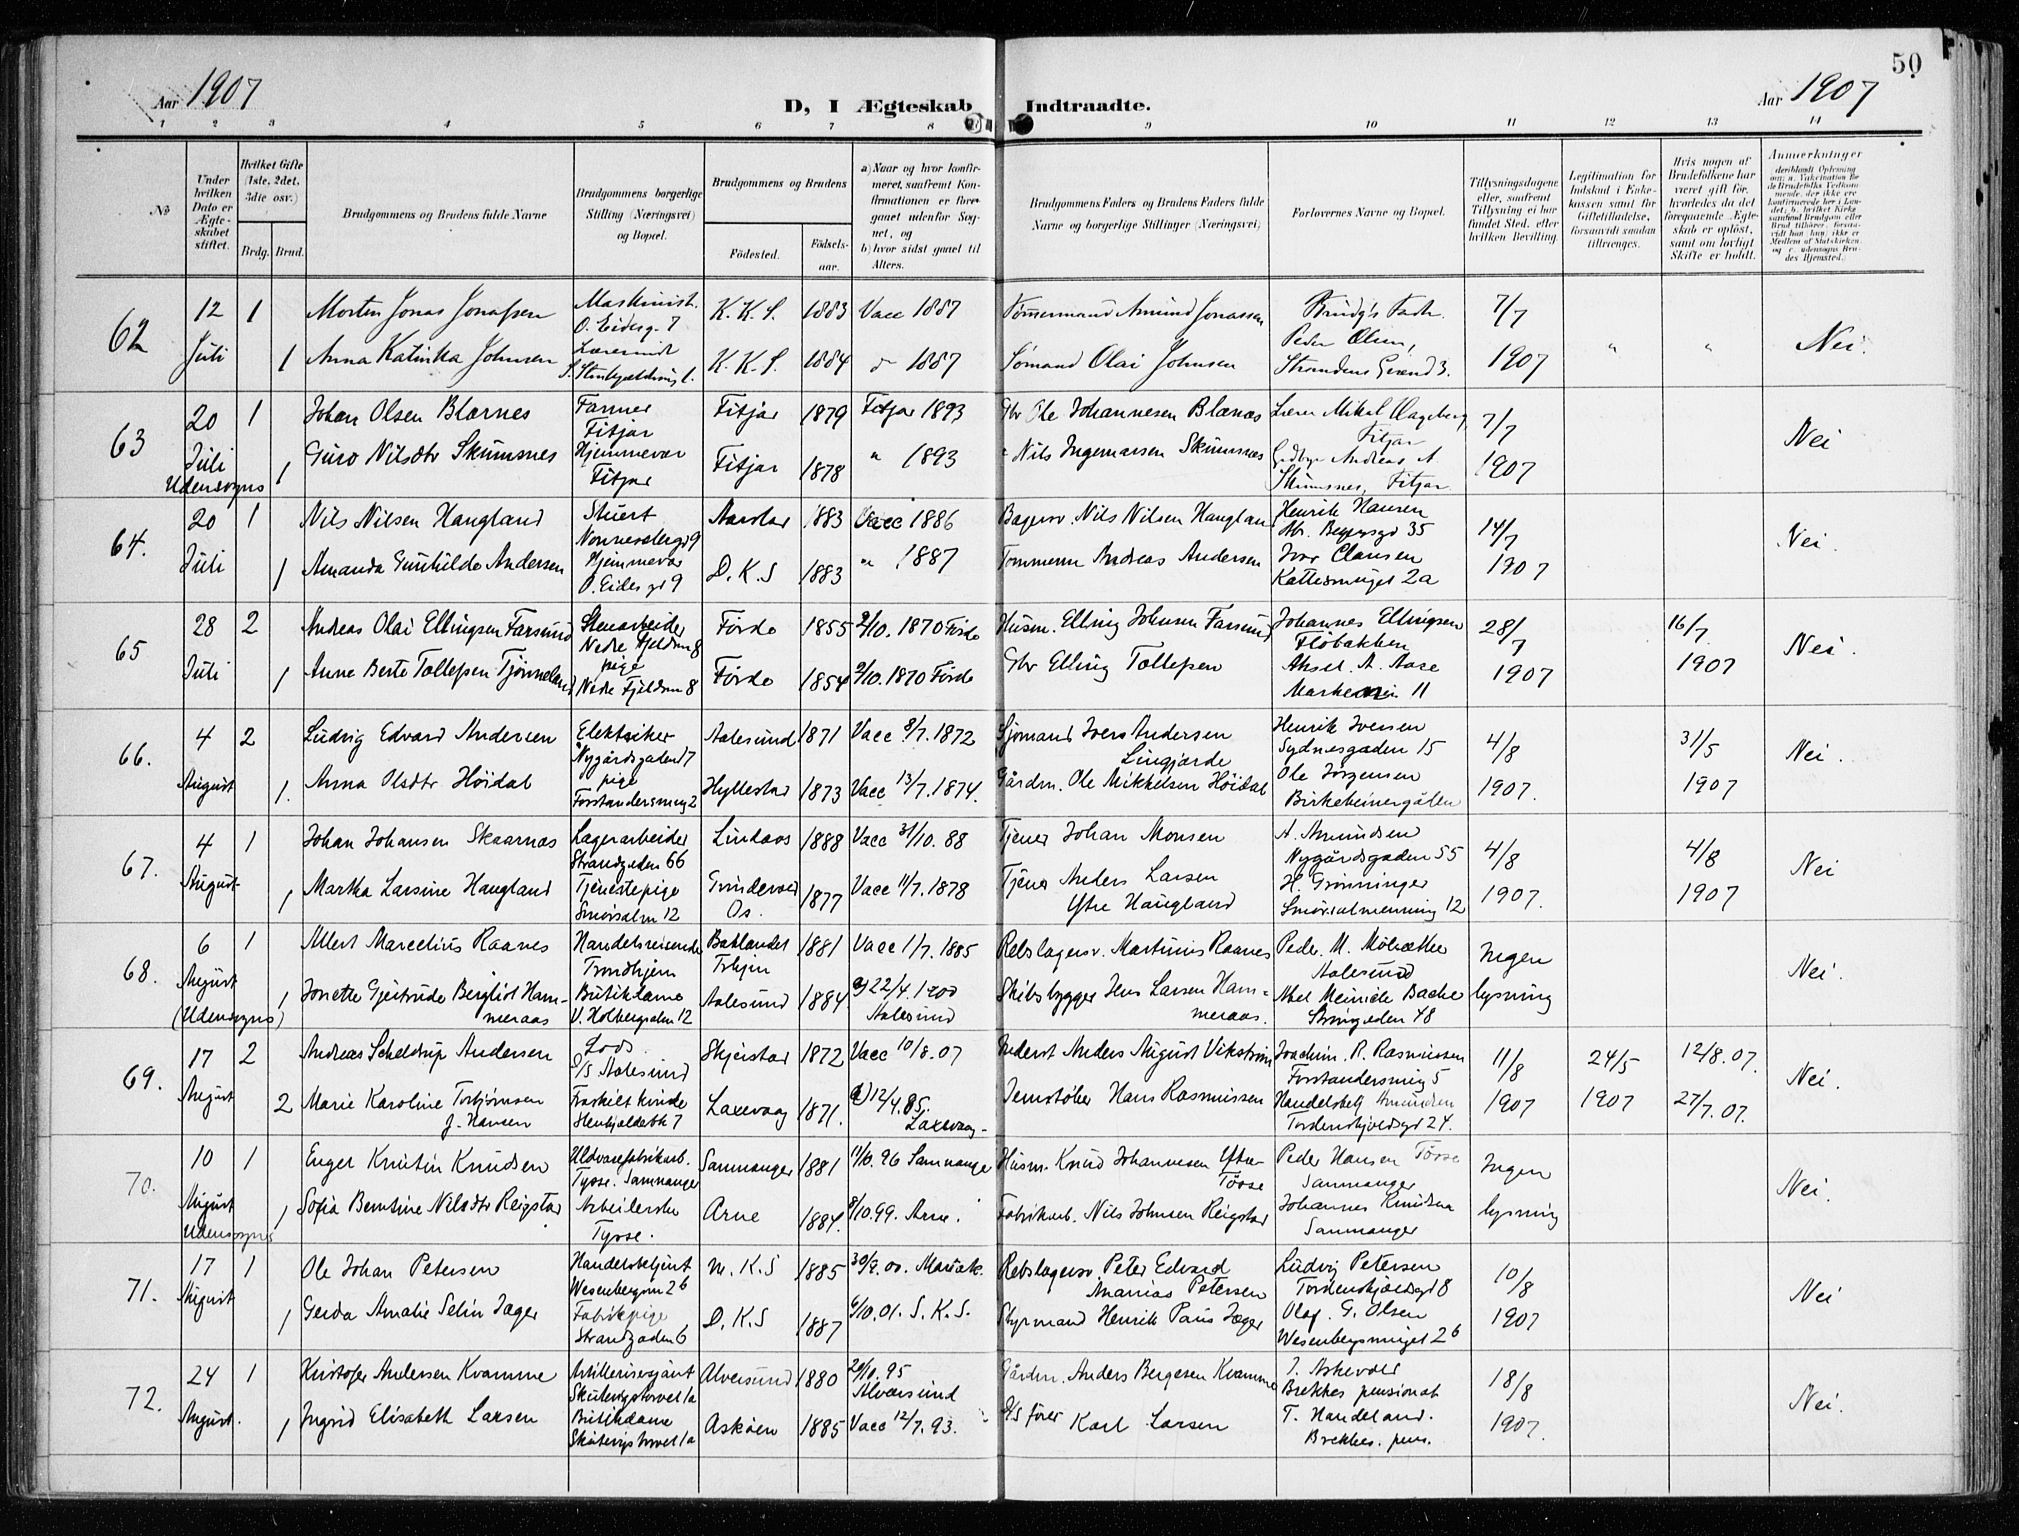 50
Aar 1907
D, I Ægteskab Indtraadte.
Aar 1907
1 2 3 4 5 6 7 8 9 10 11 12 13 14
No
Under hvilken Dato er Ægteskabet stiftet.
Hvilket Gifte (1ste, 2det, 3die osv.)
Brdg. Brud.
Brudgommens og Brudens fulde Navne
Brudgommens borgerlige Stilling (Næringsvei) og Bopæl.
Brudgommens og Brudens
Födested.
Födselsaar.
a) Naar og hvor konfirmeret, saafremt Konfirmationen er foregaaet udenfor Sognet, og
b) hvor sidst gaaet til Alters.
Brudgommens Faders og Brudens Faders fulde Navne og borgerlige Stillinger (Næringsvei)
Forlovernes Navne og Bopæl.
Tillysningsdagene eller, saafremt Tillysning ei har fundet Sted, efter hvilken Bevilling.
Legitimation for Indskud i Enkekassen samt for Giftetilladelse, forsaavidt saadan tiltrænges.
Hvis nogen af Brudefolkene har været gift för, hvorledes da det foregaaende Ægteskab er oplöst, samt om lovligt Skifte er holdt.
Anmerkninger
62 12 1 Morten Jonas Jonassen Maskinist. K. K. S. 1883 Vacc 1887 Tömmermand Amund Jonassen Brudg's Fader. 7/7
O. Eidesg. 7 Peder Olsen,
Juli 1 Anna Katinka Johnsen K. K. S. 1884 " 1887 Sömand Olai Johnsen Strandens Grænd 3. 1907 " " Nei.
63 20 1 Johan Olsen Blærnes Farmer Fitjar 1879 Fitjar 1893 Gbr Ole Johannesen Blænæs Lærer Mikal Hageberg 7/7
Fitjar Fitjar
Juli 1 Guro Nilsdtr Skumsnes Hjemmevær Fitjar 1878 " 1893 " Nils Ingemarsen Skumsnes Andreas A 1907 Nei
Udensogns Fitjar Skumsnes, Fitjar
64. 20 1 Nils Nilsen Haugland Stuert Aarstad 1883 Vacc 1886 Bagersv. Nils Nilsen Haugland Henrik Hansen 14/7
Nonneseterg 9 35
Juli 1 Amanda Gunhilde Andersen Hjemmevær D. K. S 1883 " 1887 Tømmerm Andreas Andersen Ivar Clausen 1907 Nei.
O. Eidesgd 9 Kattesmuget 2a
65 28 2 Andreas Olai Ellingsen Farsund Stenarbeider Förde 1855 2/10. 1870 Förde Husm. Elling Johnsen Farsund Johannes Ellingsen 28/7 16/7.
Nedre Fjeldsm 8 Flöbakken
Juli 1 Anne Berte Tollefsen Tjönneland pige Förde 1854 9/10. 1870 Förde Gbr Elling Tollefsen Aksel A. Aase 1907 1907 Nei.
Nedre Fjeldsm 8 Markeveien 11
66. 4 2 Ludvig Edvard Andersen Elektriker Aalesund 1871 Vacc 8/7. 1872 Sjömand Ivers Andersen Henrik Iversen 4/8 31/5
Nygårdsgaden 7 Lingjerde Sydnesgaden 15
August 1. Anna Olsdtr Höidal pige Hyllestad 1873 Vacc 13/7. 1874. Gårdm. Ole Mikkelsen Höidal Ole Jörgensen 1907. 1907 Nei.
Forstandersmug 2 Birkebeinergaten
67. 4 1 Johan Johansen Skaarnæs Lagerarbeider Lindaas 1888 Vacc 31/10. 88 Tjener Johan Monsen A. Amundsen 4/8 4/8
Strandgaden 66 Nygårdsgaden 55
August 1 Martha Larsine Haugland Tjenestepige Grindevoll 1877 Vacc 11/7. 1878 Tjener Anders Larsen H. Grönninger 1907. 1907 Nei
Smörsalm 12 Os. Ytre Haugland Smörsalmenning 12
68. 6 1 Albert Marcelius Raanes Handelsreisende Baklandet 1881 Vacc 1/7. 1885 Rebslagersv. Martinus Raanes Peder. M. Molvætke Ingen
Trondhjem Trhjm Aalesund
August 1 Jonette Gjertrude Bergliot Hammeraas Butikdame Aalesund 1884 a) 22/4. 1900 Skibsbygger Jens Larsen Hammeraas. Abel Meinich Bache lysning Nei.
(Udensogns) V. Holbergsalm 12 Aalesund Strandgaden 48
69. 17 2 Andreas Scheldrup Andersen Lods. Skjerstad 1872 Vacc 10/8. 07 Inderst Anders August Vikström Joachim. R. Rasmussen 11/8 24/5 12/8. 07.
D/S Aalesund Forstandersmug 5
August 2 Marie Karoline Torbjörnsen Fraskilt kvinde Laxevaag 1871. a) 12/4. 85. Jernstöber Hans Rasmussen Handelsbetj Amundsen 1907 1907 27/7. 07. Nei.
f. Hansen Laxevaag- Tordenskjoldsgd 24.
70. 10 1 Enger Kristin Knudsen Uldvarefabrikarb. Samnanger 1881 11/10. 96 Samnanger Husm. Knud Johannesen Ytre Peder Hansen Tösse Ingen
Tysse. Samnanger Tösse Samnanger
August 1 Sofia Berntine Nilsdtr Reigstad Arbeiderske Arne 1884. 8/10. 99. Arne. Fabrikarb. Nils Johnsen Reigstad Johannes Knudsen lysning Nei.
Udensogns Tysse. Samnanger
71. 17 1 Ole Johan Petersen Handelsbetjent N. K. S 1885 30/9. 00. Mariak. Rebslagersv. Peter Edvard Ludvig Petersen 10/8
Wesenbergsm 2b Ananias Petersen Tordenskjoldsgd 8
August 1 Gerda Amalie Selin Jæger Fabrikpige D. K. S 1887 6/10. 01. S. K. S. Styrmand Henrik Paus Jæger Olaf. G. Olsen 1907 Nei
Strandgaden 6 Wesenbergsmuget 2b
72. 24 1 Kristofer Andersen Kvamme Artillerisergiant Alversund 1880 20/10. 95 Gårdm. Anders Bergesen Kvamme J. Askevold 18/8
Skutevigstorvet 1a Alversund Brekkes pensionat
August. 1 Ingrid Elisabeth Larsen Butikdame Askøen 1885 Vacc 12/7. 93. D/S förer Karl Larsen T. Handeland. 1907. Nei.
Skutevigstorvet 1a Brekkes. pens.